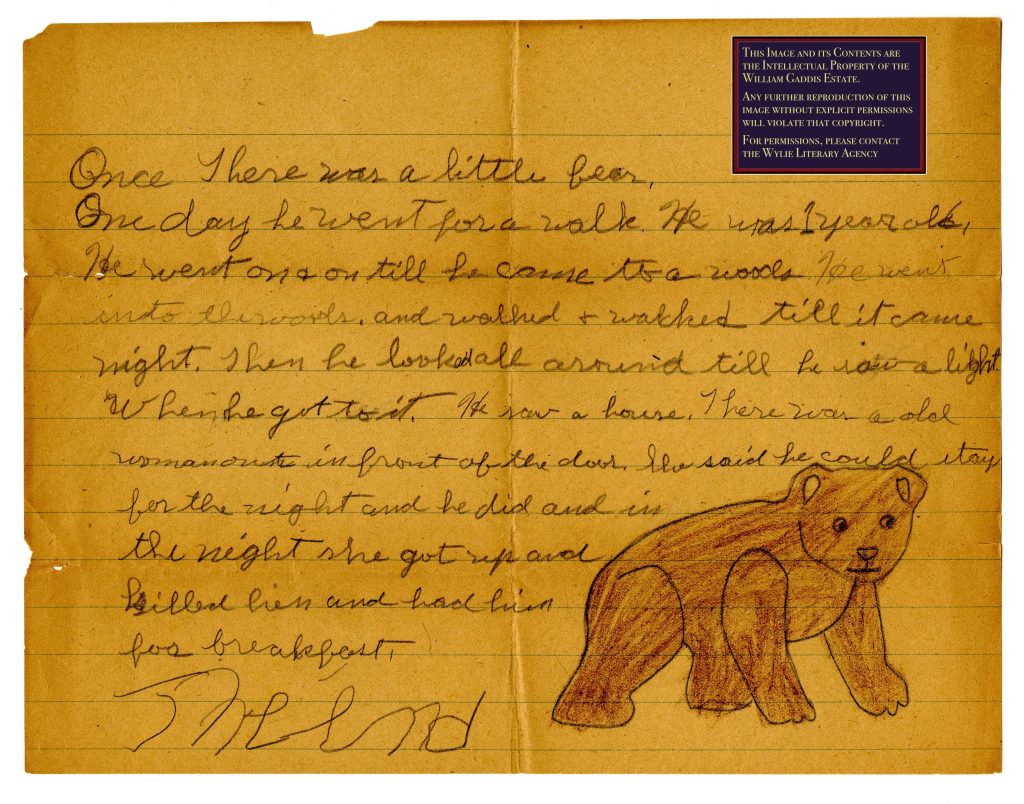 THIS IMAGE AND ITS CONTENTS ARE
THE INTELLECTUAL PROPERTY OF THE
WILLIAM GADDIS ESTATE.
ANY FURTHER REPRODUCTION OF THIS
IMAGE WITHOUT EXPLICIT PERMISSIONS
WILL VIOLATE THAT COPYRIGHT.
FOR PERMISSIONS, PLEASE CONTACT
THE WYLIE LITERARY AGENCY
Once There was a little bear,
One day he went for a walk. He was 1 year old,
He went on & on till he came to a woods He went
into the woods. and walked & walked till it came
night. Then he looked all around till he saw a light
When he got to it. He saw a house. There was a old
woman in front of the door. She said he could stay
for the night and he did and in
the night she got up and
killed him and had him
for breakfast.
The End